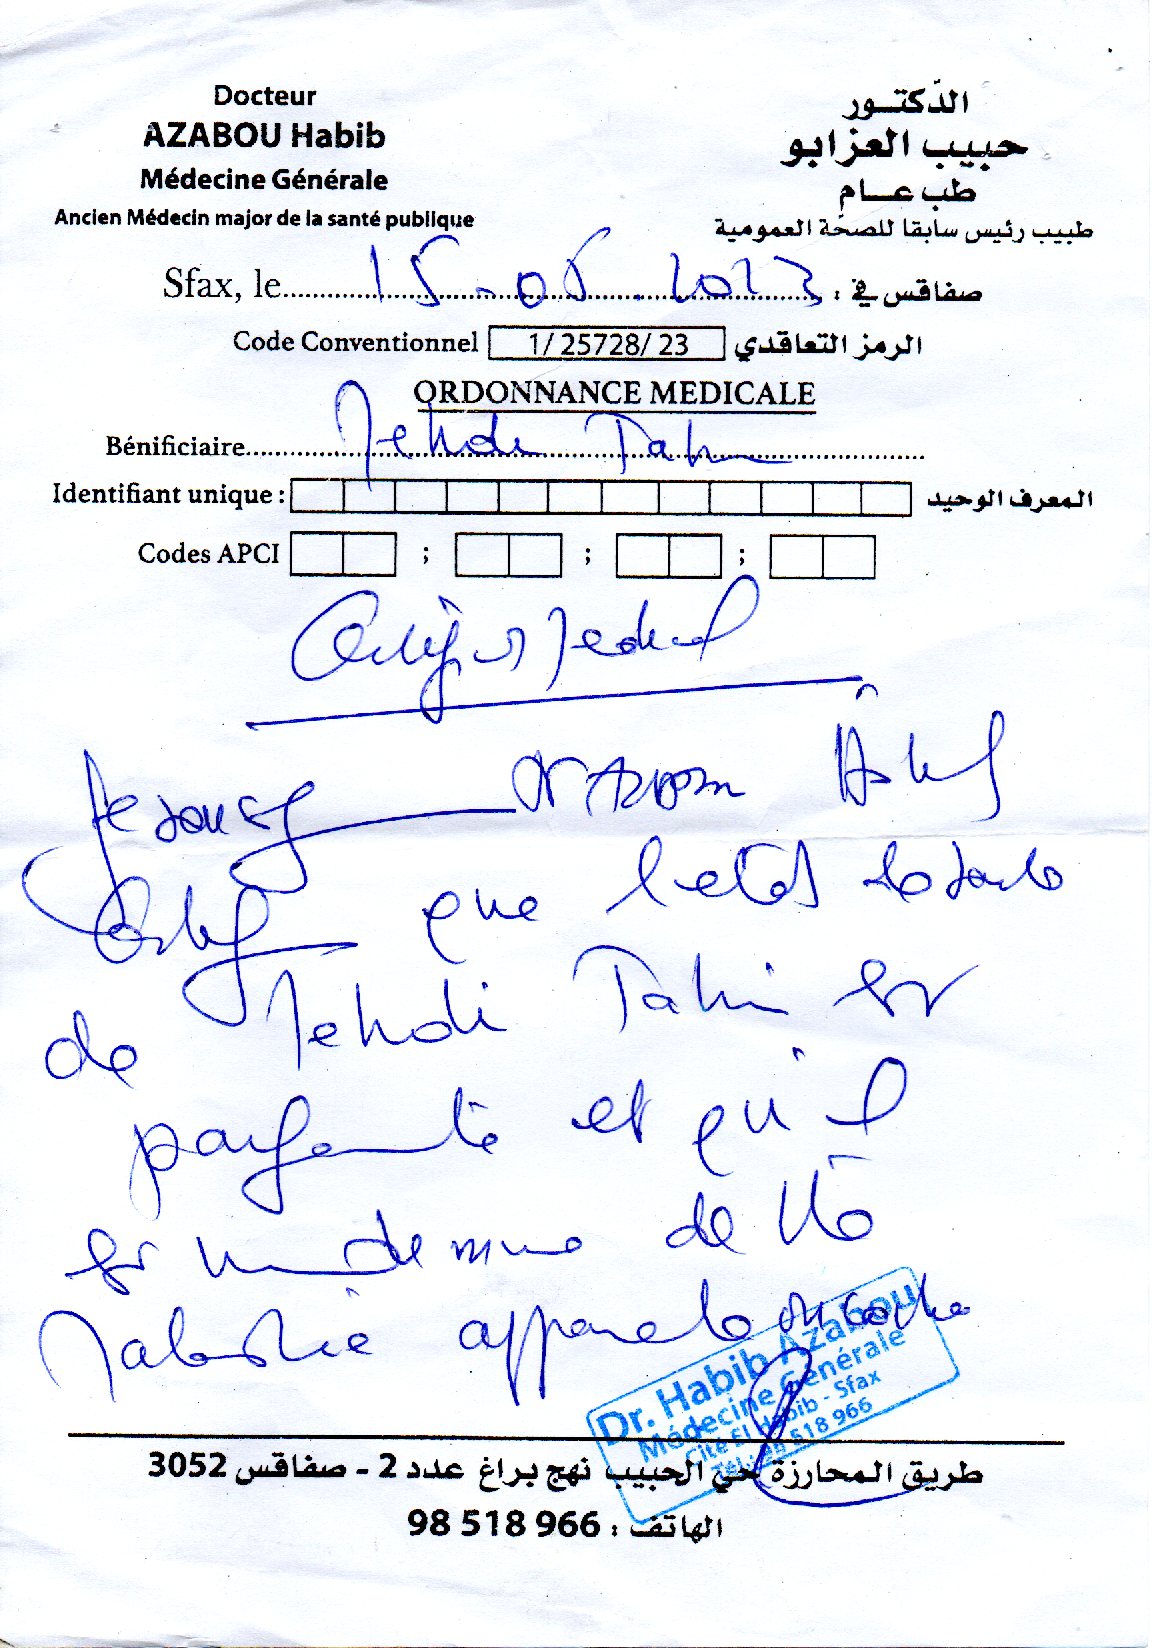 Docteur
AZABOU Habib
Médecine Générale
Ancien Médecin major de la santé publique
الدّكتــور
حبيب العزابو
طب عــام
طبيب رئيس سابقا للصحّة العمومية
Sfax, le 15-06.2023 صفاقس في :
Code Conventionnel 1/ 25728/ 23 الرمز التعاقدي
ORDONNANCE MEDICALE
Bénificiaire Mehdi Tahri
Identifiant unique : المعرف الوحيد
Codes APCI ; ; ;
Certificat Medical
Je soussigné Dr Azabou Habib
Certifie que l'etat de sante
de Mehdi Tahri est
parfaite et qu'il
est indemne de tte
Maladie apparente
Dr. Habib Azabou
Médecine Générale
Cité El Habib - Sfax
Tél.: 98 518 966
طريق المحارزة حي الحبيب نهج براغ عدد 2 - صفاقس 3052
الهاتف : 98 518 966